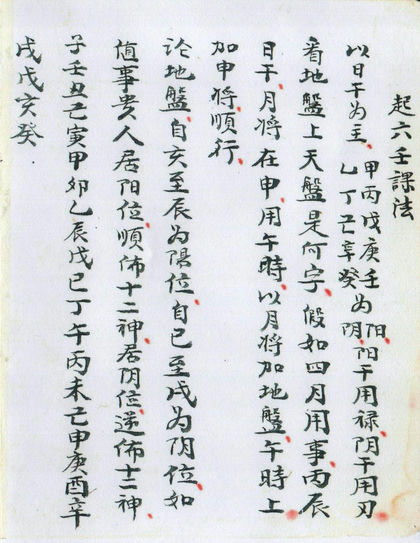 起六壬課法
以日干为主、甲丙戊庚壬乙丁己辛癸为阳阴、阳干用禄、阴干用刃
看地盤上天盤是何字、假如四月用事、丙辰
日干、月將在申用午時、以月將加地盤、午時上
加申將、順行、
論地盤、自亥至辰为陽位、自巳至戌为阴位、如
值事貴人居阳位、順佈十二神、居阴位、逆佈十二神、
子壬丑己寅甲卯乙辰戊巳丁午丙未己申庚酉辛
戌戊亥癸